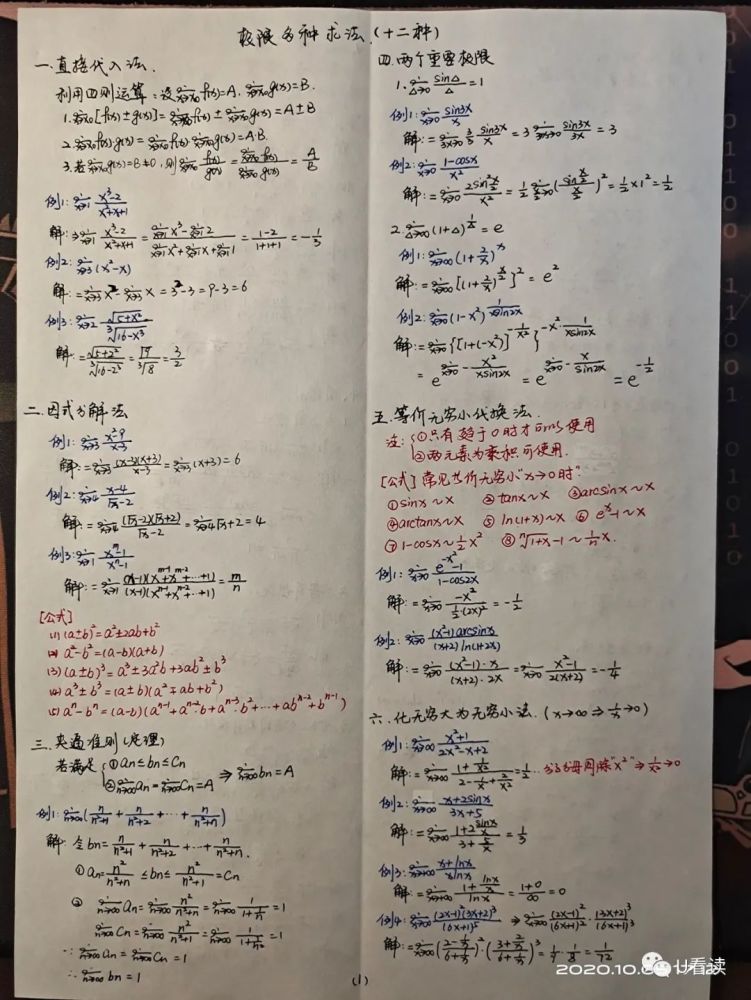 极限各种求法（十二种）
一.直接代入法.
利用四则运算：设 lim x→x₀ f(x)=A, lim x→x₀ g(x)=B.
1. lim x→x₀ [f(x)±g(x)] = lim x→x₀ f(x) ± lim x→x₀ g(x) = A±B
2. lim x→x₀ f(x)·g(x) = lim x→x₀ f(x)· lim x→x₀ g(x) = A·B.
3. 若 lim x→x₀ g(x)=B≠0, 则 lim x→x₀ f(x)/g(x) = lim x→x₀ f(x) / lim x→x₀ g(x) = A/B
例1: lim x→1 (x³-2)/(x²+x+1)
解: lim x→1 (x³-2)/(x²+x+1) = (lim x→1 x³ - lim x→1 2)/(lim x→1 x² + lim x→1 x + lim x→1 1) = (1-2)/(1+1+1) = -1/3
例2: lim x→3 (x²-x)
解: = lim x→3 x² - lim x→3 x = 3²-3 = 9-3 = 6
例3: lim x→2 √(5+x²)/∛(16-x³)
解: = √(5+2²)/∛(16-2³) = √9/∛8 = 3/2
二.因式分解法
例1: lim x→3 (x²-9)/(x-3)
解: = lim x→3 (x-3)(x+3)/(x-3) = lim x→3 (x+3) = 6
例2: lim x→4 (x-4)/(√x-2)
解: = lim x→4 (√x-2)(√x+2)/(√x-2) = lim x→4 √x+2 = 4
例3: lim x→1 (xᵐ-1)/(xⁿ-1)
解: = lim x→1 (x-1)(xᵐ⁻¹+xᵐ⁻²+…+1)/(x-1)(xⁿ⁻¹+xⁿ⁻²+…+1) = m/n
[公式]
(1) (a±b)²=a²±2ab+b²
(2) a²-b²=(a-b)(a+b)
(3) (a±b)³=a³±3a²b+3ab²±b³
(4) a³±b³=(a±b)(a²∓ab+b²)
(5) aⁿ-bⁿ=(a-b)(aⁿ⁻¹+aⁿ⁻²·b+aⁿ⁻³·b²+…+abⁿ⁻²+bⁿ⁻¹)
三.夹逼准则(定理)
若满足 ①an≤bn≤Cn
②lim n→∞ an = lim n→∞ Cn = A ⇒ lim n→∞ bn=A
例1: lim n→∞ (n/(n²+1) + n/(n²+2) + … + n/(n²+n))
解: 令bn= n/(n²+1) + n/(n²+2) + … + n/(n²+n).
① an= n²/(n²+n) ≤ bn ≤ n²/(n²+1) = Cn
② lim n→∞ an = lim n→∞ n²/(n²+n) = lim n→∞ 1/(1+1/n) = 1
lim n→∞ Cn = lim n→∞ n²/(n²+1) = lim n→∞ 1/(1+1/n²) = 1
∵ lim n→∞ an = lim n→∞ Cn = 1
∴ lim n→∞ bn = 1
四.两个重要极限
1. lim △→0 sin△/△ = 1
例1: lim x→0 sin3x/x
解: = lim 3x→0 3/3 · sin3x/x = 3 lim 3x→0 sin3x/3x = 3
例2: lim x→0 (1-cosx)/x²
解: = lim x→0 2sin²(x/2)/x² = 1/2 lim x/2→0 (sin(x/2)/(x/2))² = 1/2×1² = 1/2
2. lim △→0 (1+△)^(1/△) = e
例1: lim x→∞ (1+2/x)^x
解: = lim x→∞ [(1+2/x)^(x/2)]² = e²
例2: lim x→0 (1-x²)^(1/(xsin2x))
解: = lim x→0 {[1+(-x²)]^(-1/x²)}^(-x²·1/(xsin2x))
= e^(lim x→0 -x²/(xsin2x)) = e^(lim x→0 -x/sin2x) = e^(-1/2)
五.等价无穷小代换法.
注: ①只有趋于0时才可以使用
②两元素为乘积可使用.
[公式] 常见等价无穷小"x→0时".
①sinx~x ②tanx~x ③arcsinx~x
④arctanx~x ⑤ln(1+x)~x ⑥eˣ-1~x
⑦1-cosx~1/2x² ⑧ⁿ√(1+x)-1~1/n x.
例1: lim x→0 (e^(-x²)-1)/(1-cos2x)
解: = lim x→0 -x²/(1/2(2x)²) = -1/2
例2: lim x→0 (x²-1)arcsinx/((x+2)ln(1+2x))
解: = lim x→0 (x²-1)·x/((x+2)·2x) = lim x→0 (x²-1)/(2(x+2)) = -1/4
六.化无穷大为无穷小法.(x→∞⇒1/x→0)
例1: lim x→∞ (x²+1)/(2x²-x+2)
解: = lim x→∞ (1+1/x²)/(2-1/x+2/x²) = 1/2 … 分子分母同除"x²"⇒1/x²→0
例2: lim x→∞ (x+2sinx)/(3x+5)
解: = lim x→∞ (1+2sinx/x)/(3+5/x) = 1/3
例3: lim x→∞ (x+lnx)/(xlnx)
解: = lim x→∞ (1+lnx/x)/lnx = (1+0)/∞ = 0
例4: lim x→∞ (2x-1)²(3x+2)³/(6x+1)⁵ ⇒ lim x→∞ (2x-1)²/(6x+1)² · (3x+2)³/(6x+1)³
解: = lim x→∞ ((2-1/x)/(6+1/x))² · ((3+2/x)/(6+1/x))³ = 1/9 · 1/8 = 1/72
(1)
廿看读